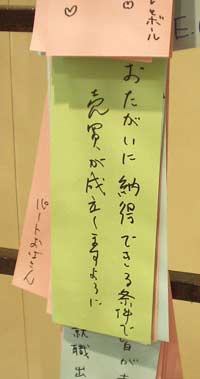 ボール
おたがいに納得できる条件で
売買が成立しますように
パート
就職出